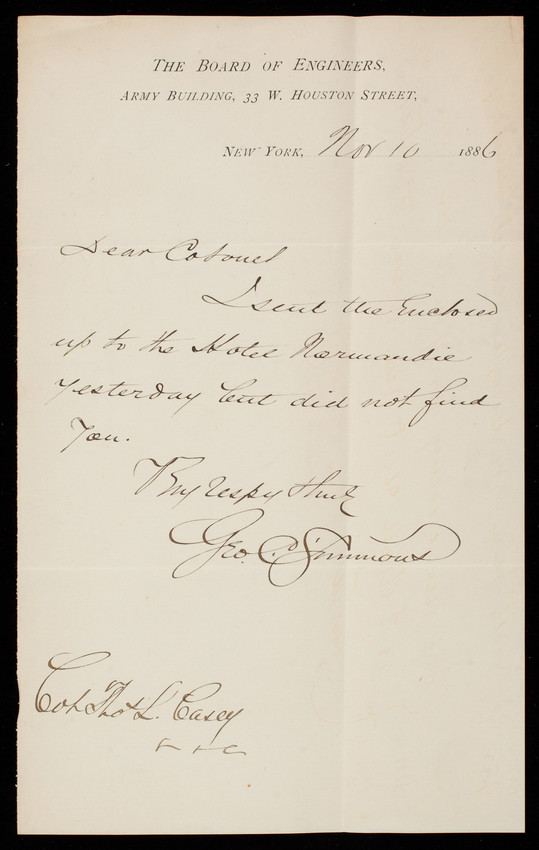 THE BOARD OF ENGINEERS,
ARMY BUILDING, 33 W. HOUSTON STREET,
NEW YORK, Nov 10 1886
Dear Colonel
I send the Enclosed
up to the Hotel Normandie
yesterday but did not find
you.
Very respy
Geo. C. Simmons
Col. Thos L. Casey